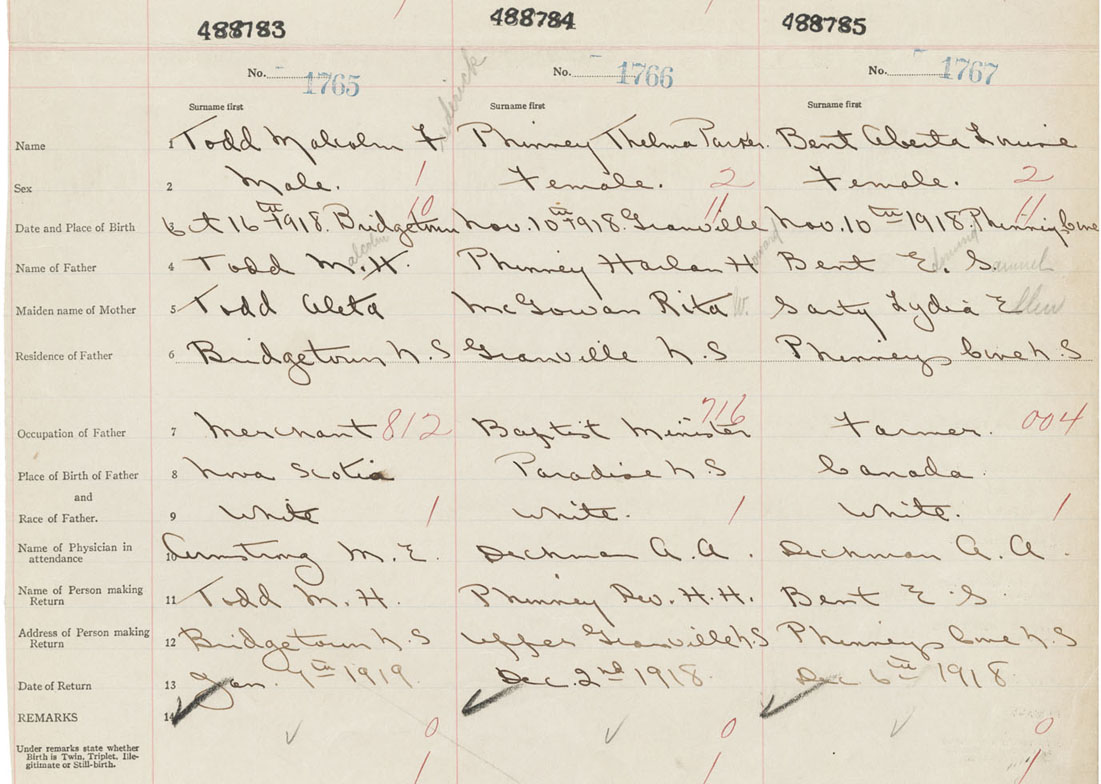 488783 488784 488785
No. 1765 No. 1766 No. 1767
Surname first Surname first Surname first
Name 1 Todd Malcolm F rederick Phinney Thelma Parker. Bent Alberta Louise
Sex 2 Male. 1 Female. 2 Female. 2
10 11 11
Date and Place of Birth 3 Oct 16th 1918. Bridgetown Nov. 10th 1918. Granville Nov. 10th 1918. Phinney Cove
Name of Father 4 Todd M alcolm. H. Phinney Harlan H Bent E dmund. S amuel
Maiden name of Mother 5 Todd Aleta McGowan Rita W. Sarty Lydia Ellen
Residence of Father 6 Bridgetown N.S Granville N.S Phinneys Cove N.S
Occupation of Father 7 Merchant 812 Baptist Minister 716 Farmer. 004
Place of Birth of Father 8 Nova Scotia Paradise N.S Canada.
and
Race of Father. 9 White 1 White. 1 White. 1
Name of Physician in attendance 10 Armstrong M. E. Deckman A. A. Deckman A. A.
Name of Person making Return 11 Todd M. H. Phinney Rev. H. H. Bent E. S.
Address of Person making Return 12 Bridgetown N.S Upper Granville N.S Phinneys Cove N.S
Date of Return 13 Jan. 7th 1919. Dec. 2nd 1918. Dec 6th 1918
REMARKS 14 0 0 0
Under remarks state whether
Birth is Twin, Triplet, Ille-
gitimate or Still-birth.
1 1 1